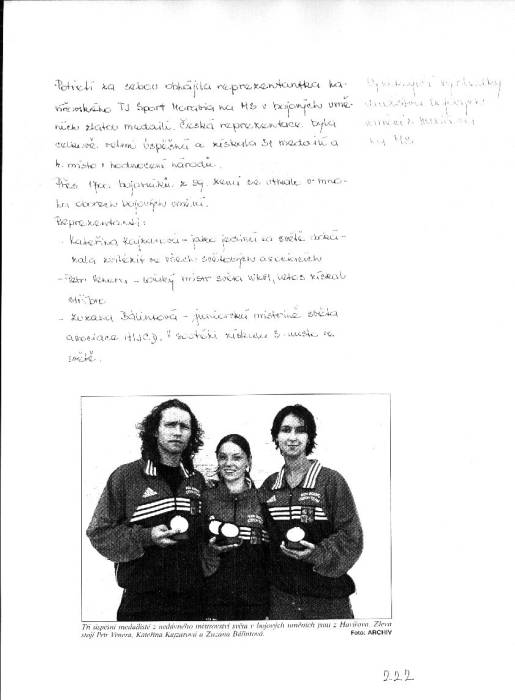 Potřetí za sebou obhájila reprezentantka ha-
vířovského TJ Sport Morabia na MS v bojových umě-
ních zlatou medaili. Česká reprezentace byla
celkově velmi úspěšná a získala 31 medailí a
4. místo v hodnocení národů.
Přes 1700 bojovníků z 59 zemí se utkalo v mno-
ha oborech bojových umění.
Reprezentanti:
- Kateřina - jako jediná na světě doká-
zala zvítězit ve všech světových asociacích
- Petr Venera - loňský mistr světa letos získal
stříbro
- Zuzana Bálintová - juniorská mistryně světa
asociace V soutěži získala 3. místo na
světě.
Vynikající výsledky
bojových
umění z Havířova
na MS
Tři úspěšní medailisté z nedávného mistrovství světa v bojových uměních jsou z Havířova. Zleva
stojí Petr Venera, Kateřina Kajzarová a Zuzana Bálintová.
Foto: ARCHIV
222